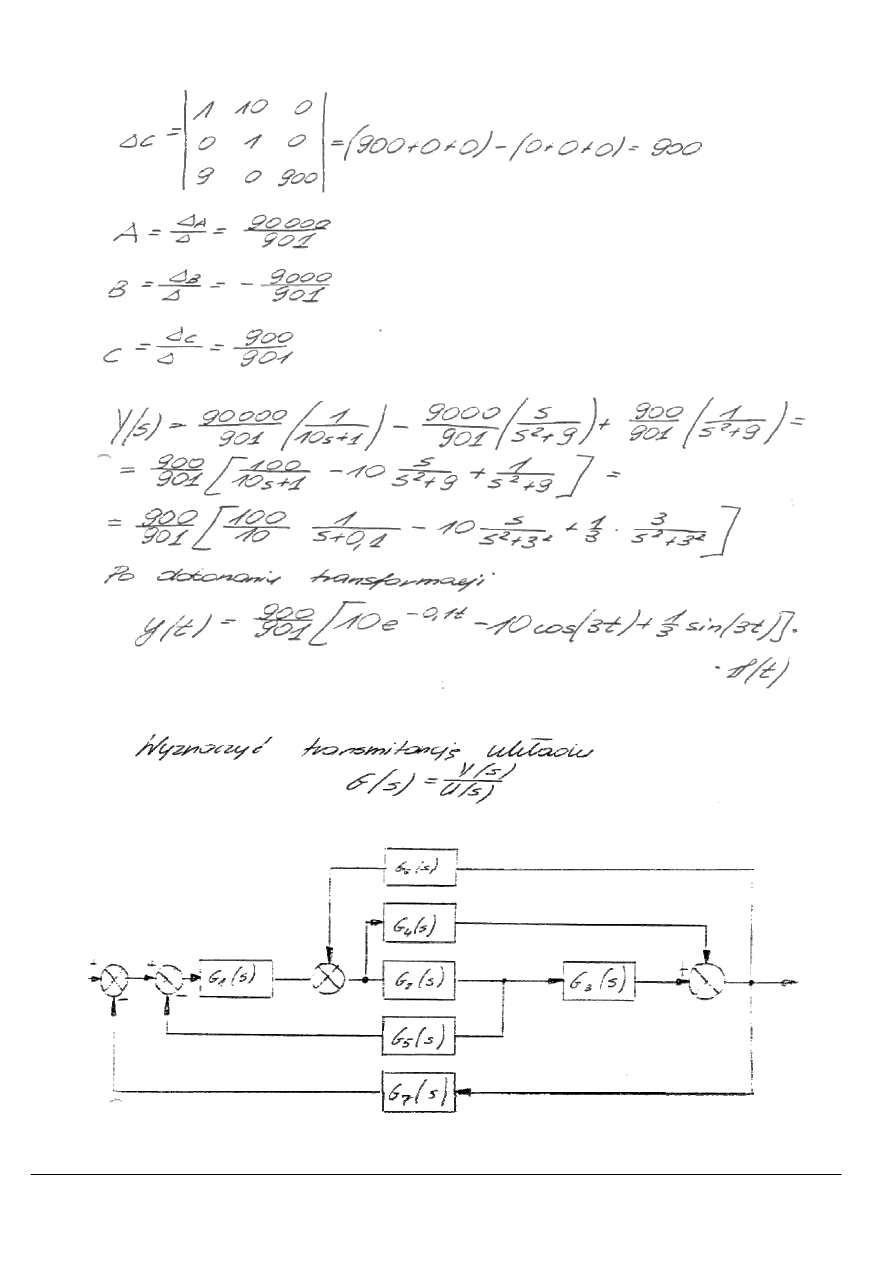 ΔC = | 1 10 0 |
| 0 1 0 | = (900+0+0) - (0+0+0) = 900
| 9 0 900 |
A = ΔA/Δ = 90000/901
B = ΔB/Δ = - 9000/901
C = ΔC/Δ = 900/901
Y(s) = 90000/901 (1/(10s+1)) - 9000/901 (s/(s²+9)) + 900/901 (1/(s²+9)) =
= 900/901 [100/(10s+1) - 10 s/(s²+9) + 1/(s²+9)] =
= 900/901 [100/10 1/(s+0,1) - 10 s/(s²+3²) + 1/3 · 3/(s²+3²)]
Po dokonaniu transformacji
y(t) = 900/901 [10e^(-0,1t) - 10 cos(3t) + 1/3 sin(3t)] ·
· 1(t)
Wyznaczyć transmitancję układów
G(s) = Y(s)/U(s)
G₆(s)
G₄(s)
+ + G₁(s) G₂(s) G₃(s) +
- -
G₅(s)
G₇(s)